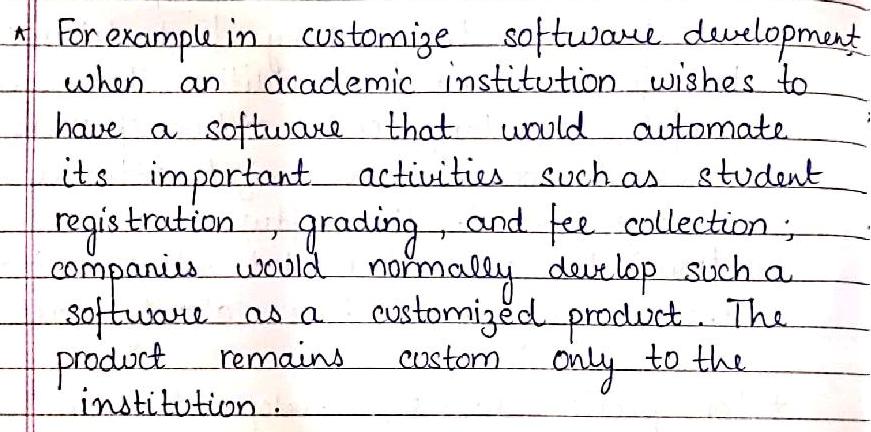 * For example in customize software development
when an academic institution wishes to
have a software that would automate
its important activities such as student
registration, grading, and fee collection;
companies would normally develop such a
software as a customized product. The
product remains custom only to the
institution.